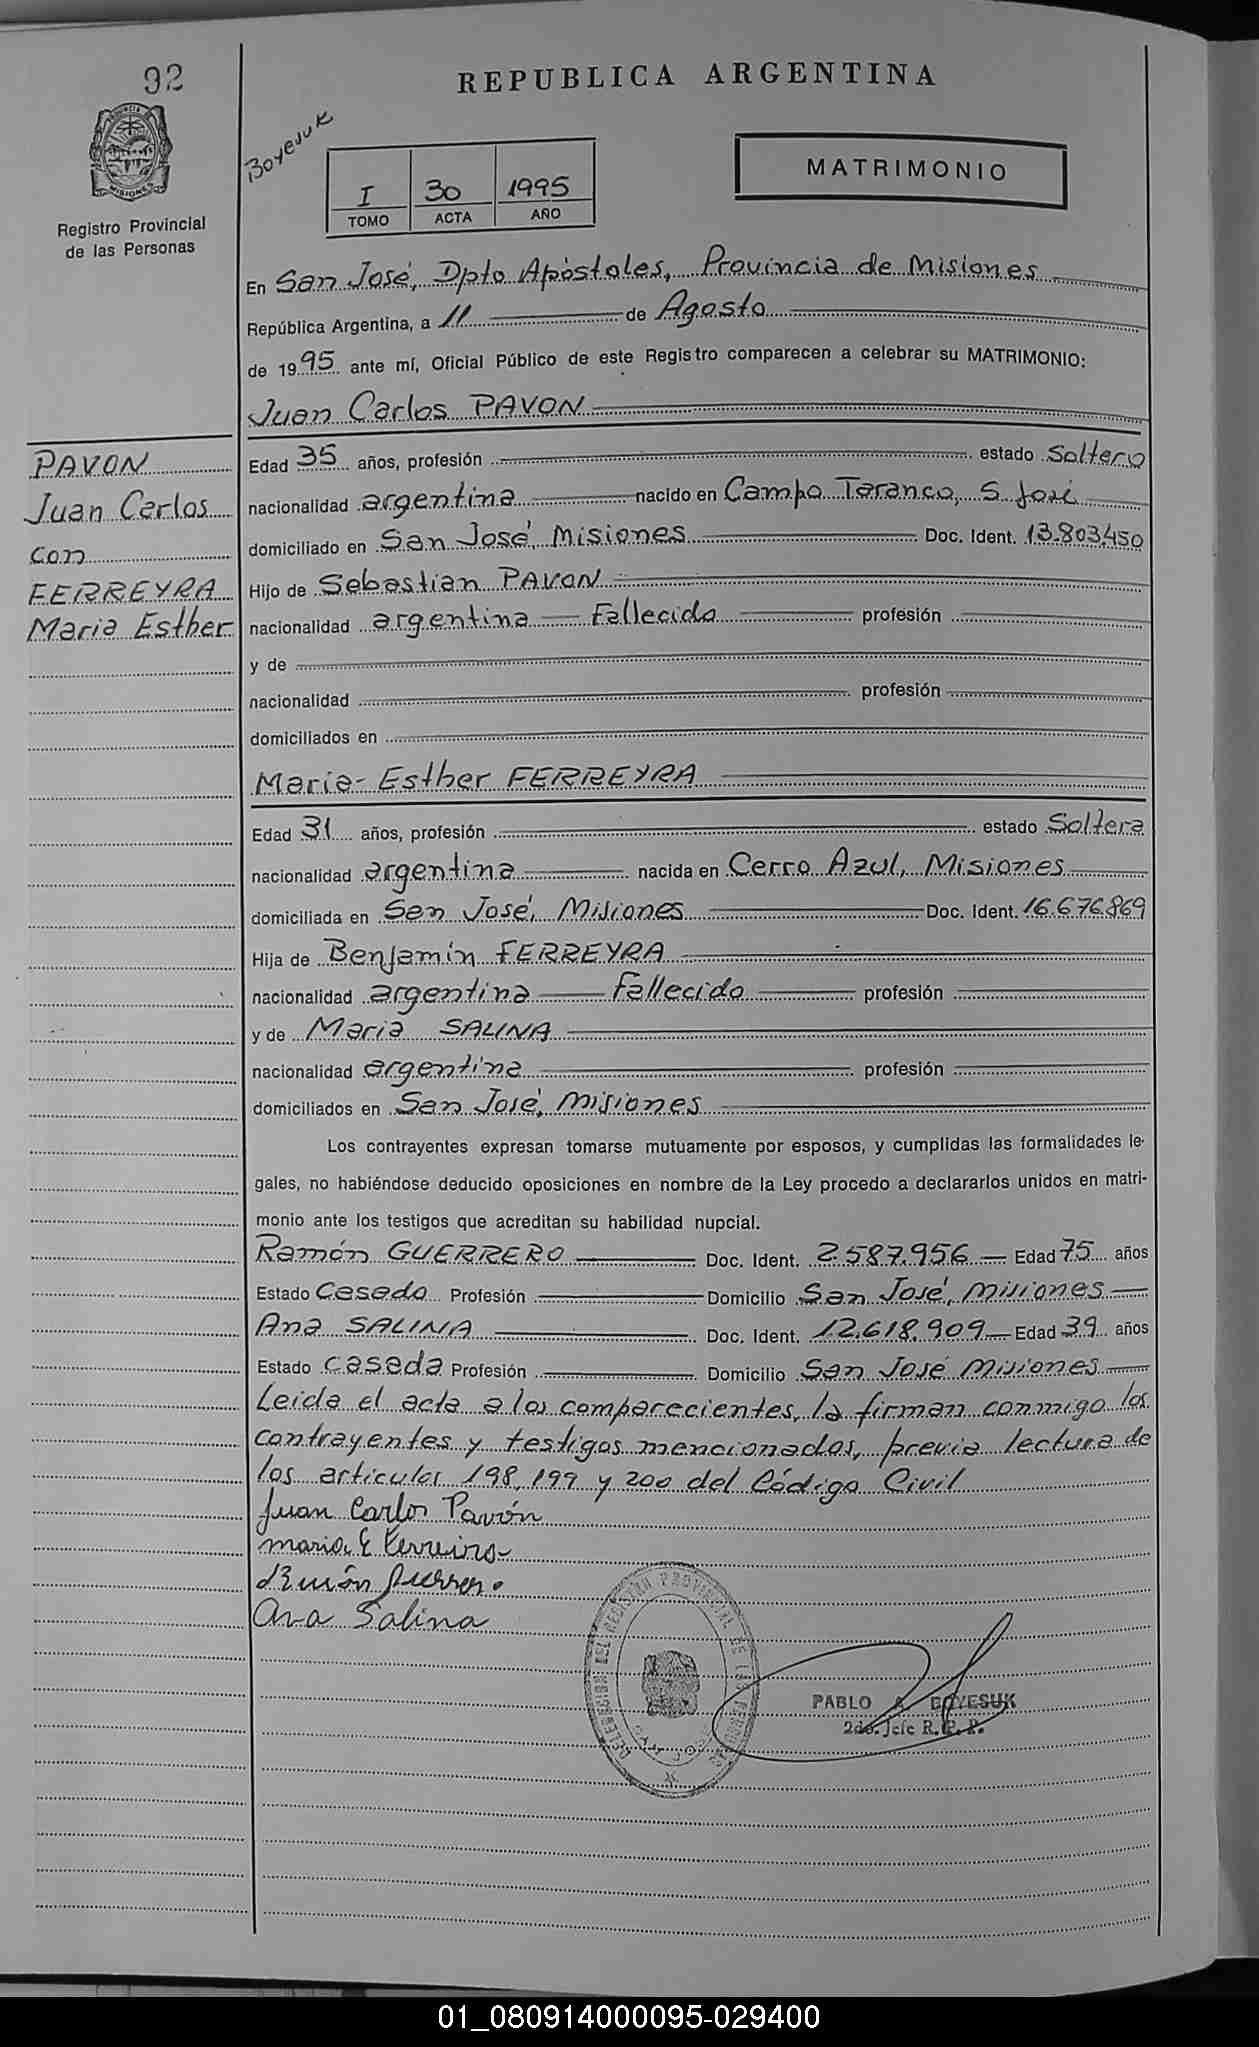 92
REPUBLICA ARGENTINA
Boyesuk
MATRIMONIO
I 30 1995
TOMO ACTA AÑO
Registro Provincial
de las Personas
En San José, Dpto Apóstoles, Provincia de Misiones
República Argentina, a 11 de Agosto
de 1995 ante mí, Oficial Público de este Registro comparecen a celebrar su MATRIMONIO:
Juan Carlos PAVON
PAVON
Juan Carlos
con
FERREYRA
Maria Esther
Edad 35 años, profesión estado Soltero
nacionalidad argentina nacido en Campo Taranco, S. José
domiciliado en San José, Misiones Doc. Ident. 13.803.450
Hijo de Sebastian PAVON
nacionalidad argentina — Fallecido profesión
y de
nacionalidad profesión
domiciliados en
Maria-Esther FERREYRA
Edad 31 años, profesión estado Soltera
nacionalidad argentina nacida en Cerro Azul, Misiones
domiciliada en San José, Misiones Doc. Ident. 16.676.869
Hija de Benjamín FERREYRA
nacionalidad argentina — Fallecido profesión
y de Maria SALINA
nacionalidad argentina profesión
domiciliados en San José, Misiones
Los contrayentes expresan tomarse mutuamente por esposos, y cumplidas las formalidades le-
gales, no habiéndose deducido oposiciones en nombre de la Ley procedo a declararlos unidos en matri-
monio ante los testigos que acreditan su habilidad nupcial.
Ramón GUERRERO Doc. Ident. 2.587.956 — Edad 75 años
Estado Casado Profesión Domicilio San José, Misiones —
Ana SALINA Doc. Ident. 12.618.909 — Edad 39 años
Estado casada Profesión Domicilio San José Misiones
Leida el acta a los comparecientes, la firman conmigo los
contrayentes y testigos mencionados, previa lectura de
los articulos 198, 199 y 200 del Código Civil
Juan Carlos Pavón
maria E Ferreira
Ramón Guerrero
Ana Salina
DELEGACION DEL REGISTRO PROVINCIAL DE LAS PERSONAS
SAN JOSE
PABLO A. BOYESUK
2do. Jefe R. P. P.
01_080914000095-029400